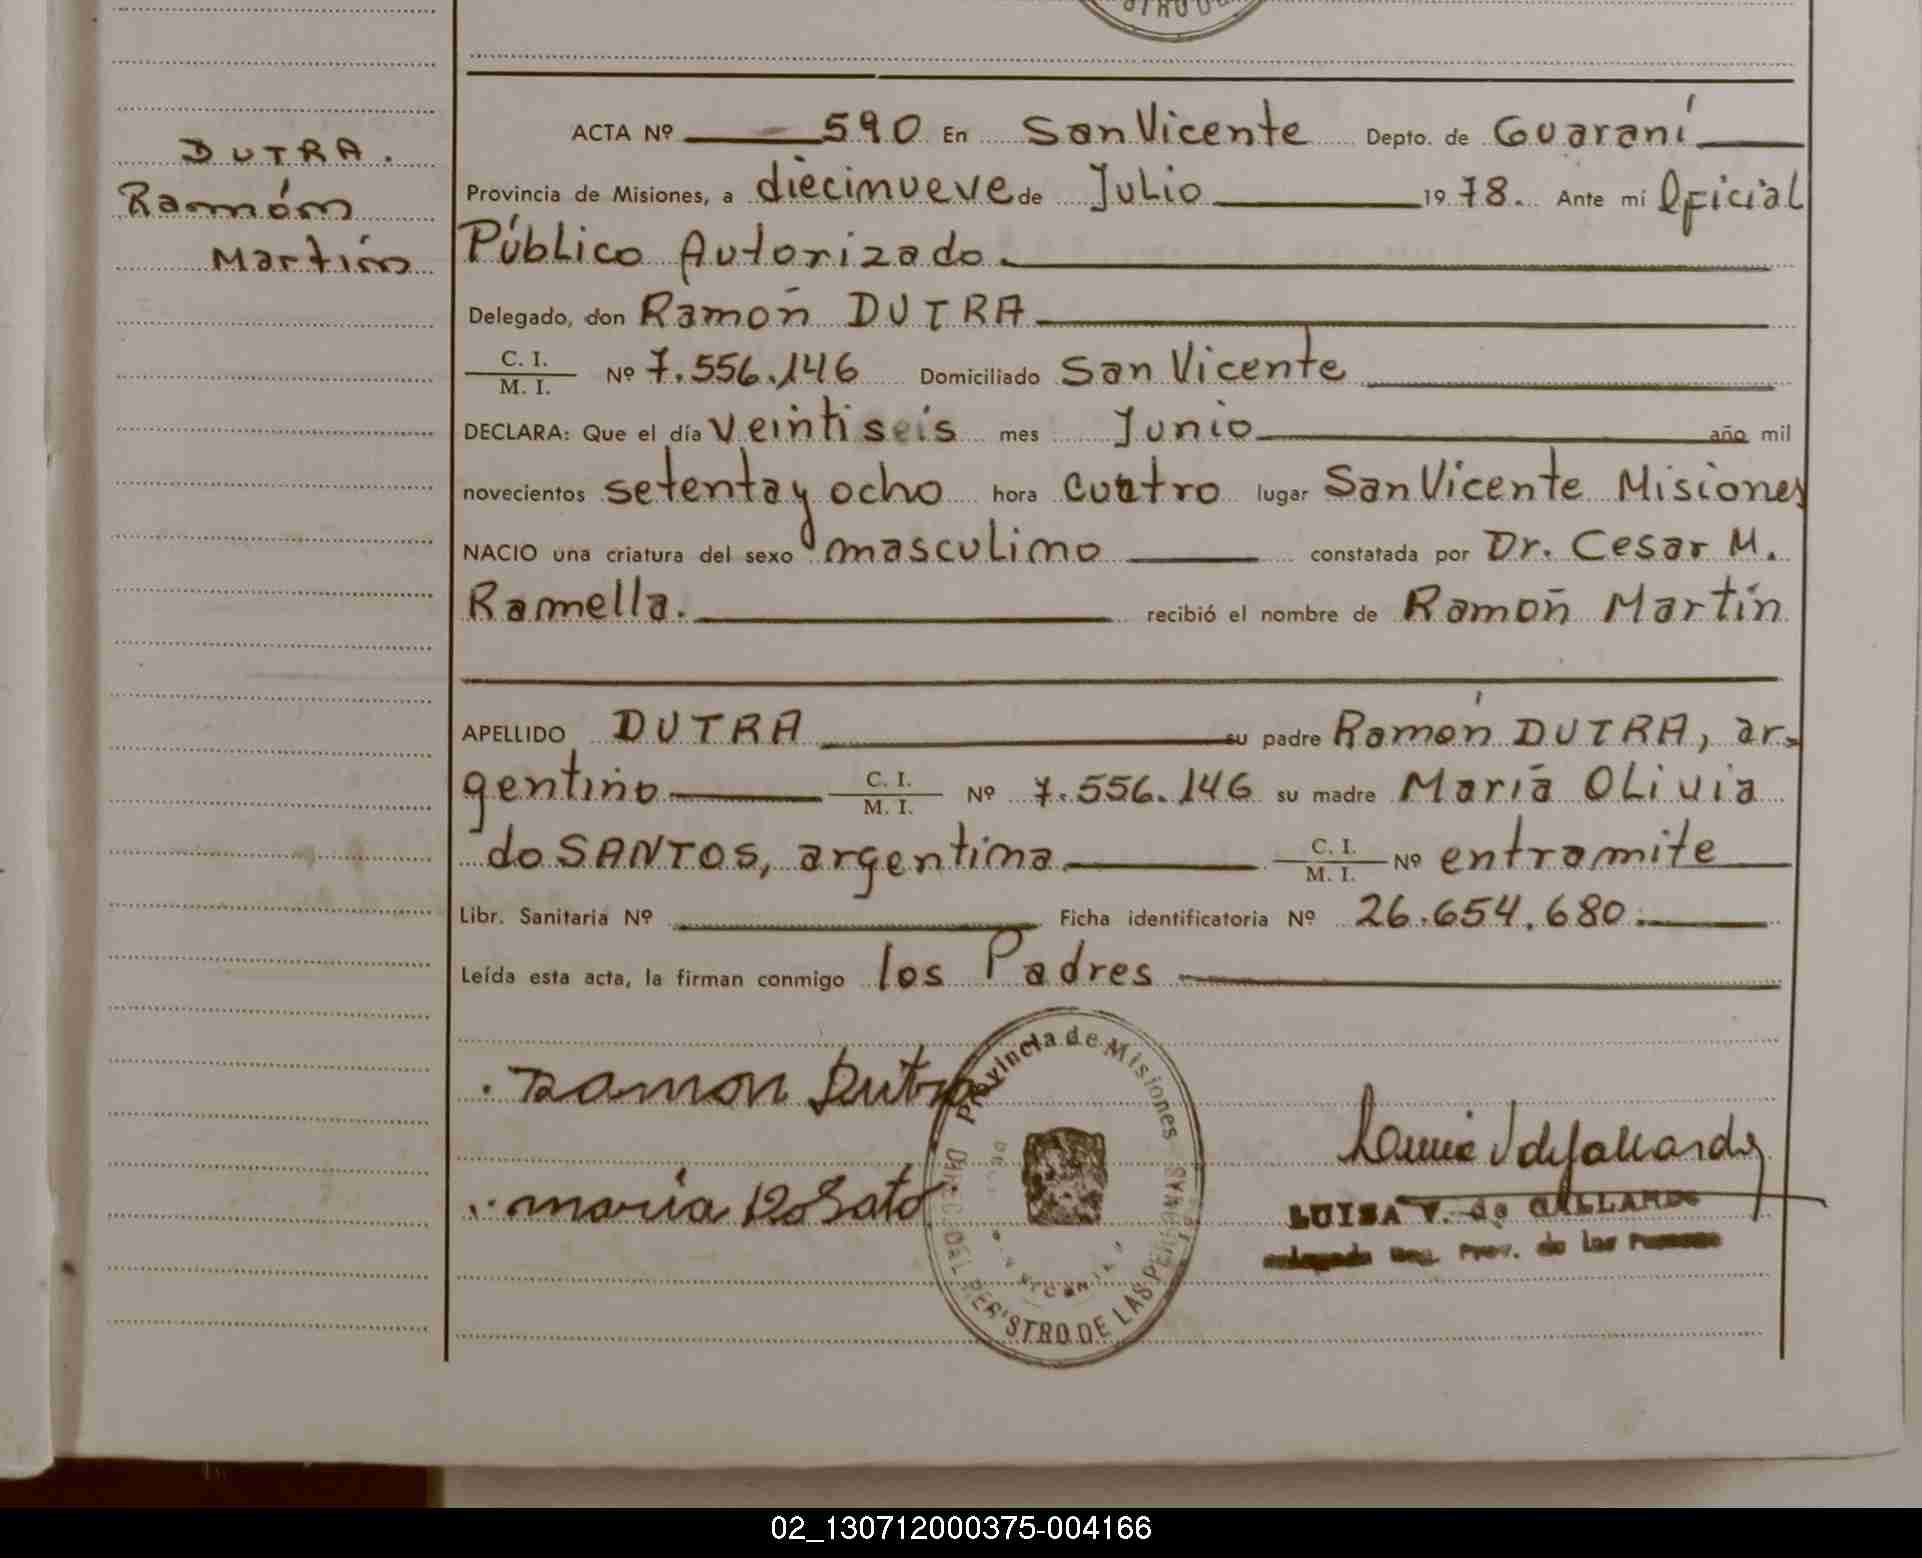 DUTRA.
Ramón
Martín
ACTA Nº 590 En San Vicente Depto. de Guaraní
Provincia de Misiones, a diecinueve de Julio 1978. Ante mí Oficial
Público Autorizado.
Delegado, don Ramón DUTRA
C. I.
M. I. Nº 7.556.146 Domiciliado San Vicente
DECLARA: Que el día veintiseis mes Junio año mil
novecientos setenta y ocho hora cuatro lugar San Vicente Misiones
NACIO una criatura del sexo masculino constatada por Dr. Cesar M.
Ramella. recibió el nombre de Ramón Martín
APELLIDO DUTRA su padre Ramón DUTRA, ar-
gentino C. I. M. I. Nº 7.556.146 su madre María OLivia
do SANTOS, argentina C. I. M. I. Nº entramite
Libr. Sanitaria Nº Ficha identificatoria Nº 26.654.680.
Leída esta acta, la firman conmigo los Padres
Ramon Dutra
maria Do Sato
Provincia de Misiones
DEL REGISTRO DE LAS PERSONAS
LUISA V. de GALLARDO
Delegada Reg. Prov. de las Personas
02_130712000375-004166